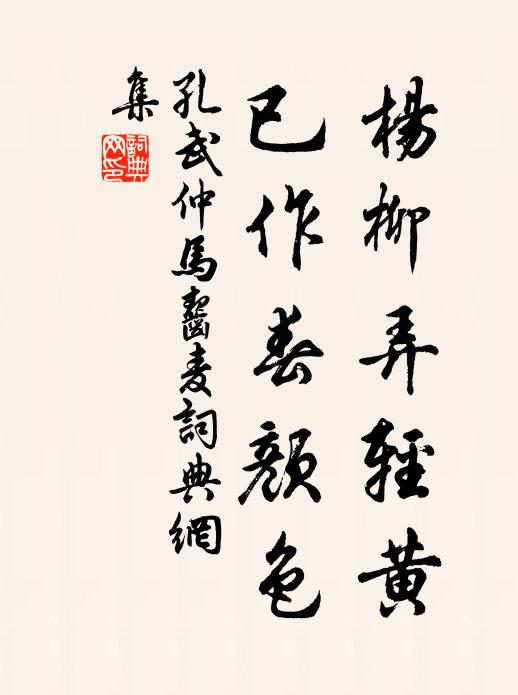 楊柳弄輕黃
已作春顏色
孔武仲馬齧麦詞典網
集
詞典
网印